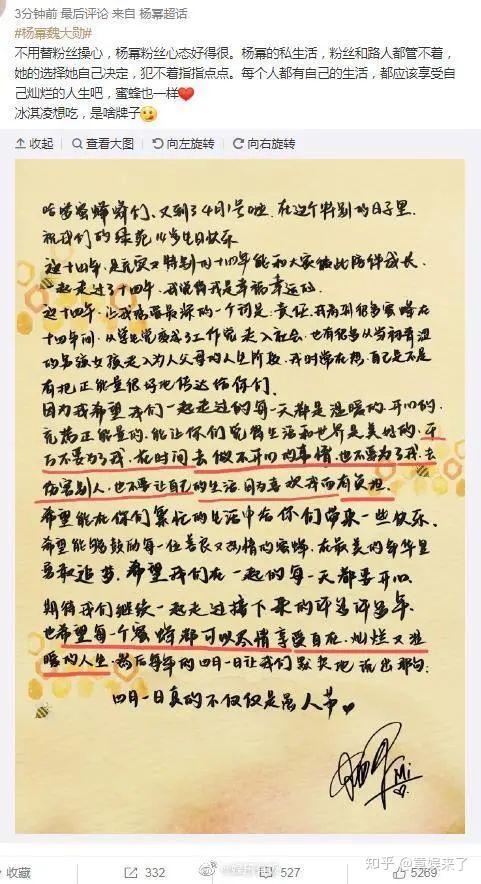 3分钟前 最后评论 来自 杨幂超话
#杨幂魏大勋#
不用替粉丝操心，杨幂粉丝心态好得很。杨幂的私生活，粉丝和路人都管不着，
她的选择她自己决定，犯不着指指点点。每个人都有自己的生活，都应该享受自
己灿烂的人生吧，蜜蜂也一样
冰淇凌想吃，是啥牌子
收起 查看大图 向左旋转 向右旋转
哈喽蜜蜂蜂们、又到了4月1号啦. 在这个特别的日子里.
祝我们的绿苑14岁生日快乐
这十四年. 是充实又特别的十四年能和大家彼此陪伴成长.
一起走过了十四年. 我觉得我是幸福幸运的.
这十四年. 让我感受最深的一个词是: 责任. 我看到很多蜜蜂在
十四年间. 从学生党变成了工作党走入社会. 也有很多从当初青涩
的男孩女孩走入为人父母的人生阶段. 我时常在想. 自己是不是
有把正能量很好地传达给你们.
因为我希望我们一起走过的每一天都是温暖的. 开心的.
充满正能量的. 能让你们觉得生活和世界是美好的. 千
万不要为了我. 花时间去做不开心的事情. 也不要为了我. 去
伤害别人. 也不要让自己的生活因为喜欢我而有负担.
希望能在你们繁忙的生活中给你们带来一些快乐.
希望能够鼓励每一位善良又热情的蜜蜂. 在最美的年华里
勇敢追梦. 希望我们在一起的每一天都要开心.
期待我们继续一起走过接下来的许多许多年.
也希望每一个蜜蜂都可以尽情享受自在. 灿烂又温
暖的人生. 然后每年的四月一日让我们默契地说出那句:
四月一日真的不仅仅是愚人节
Mi
收藏 332 527 5269
知乎 @黄娱来了